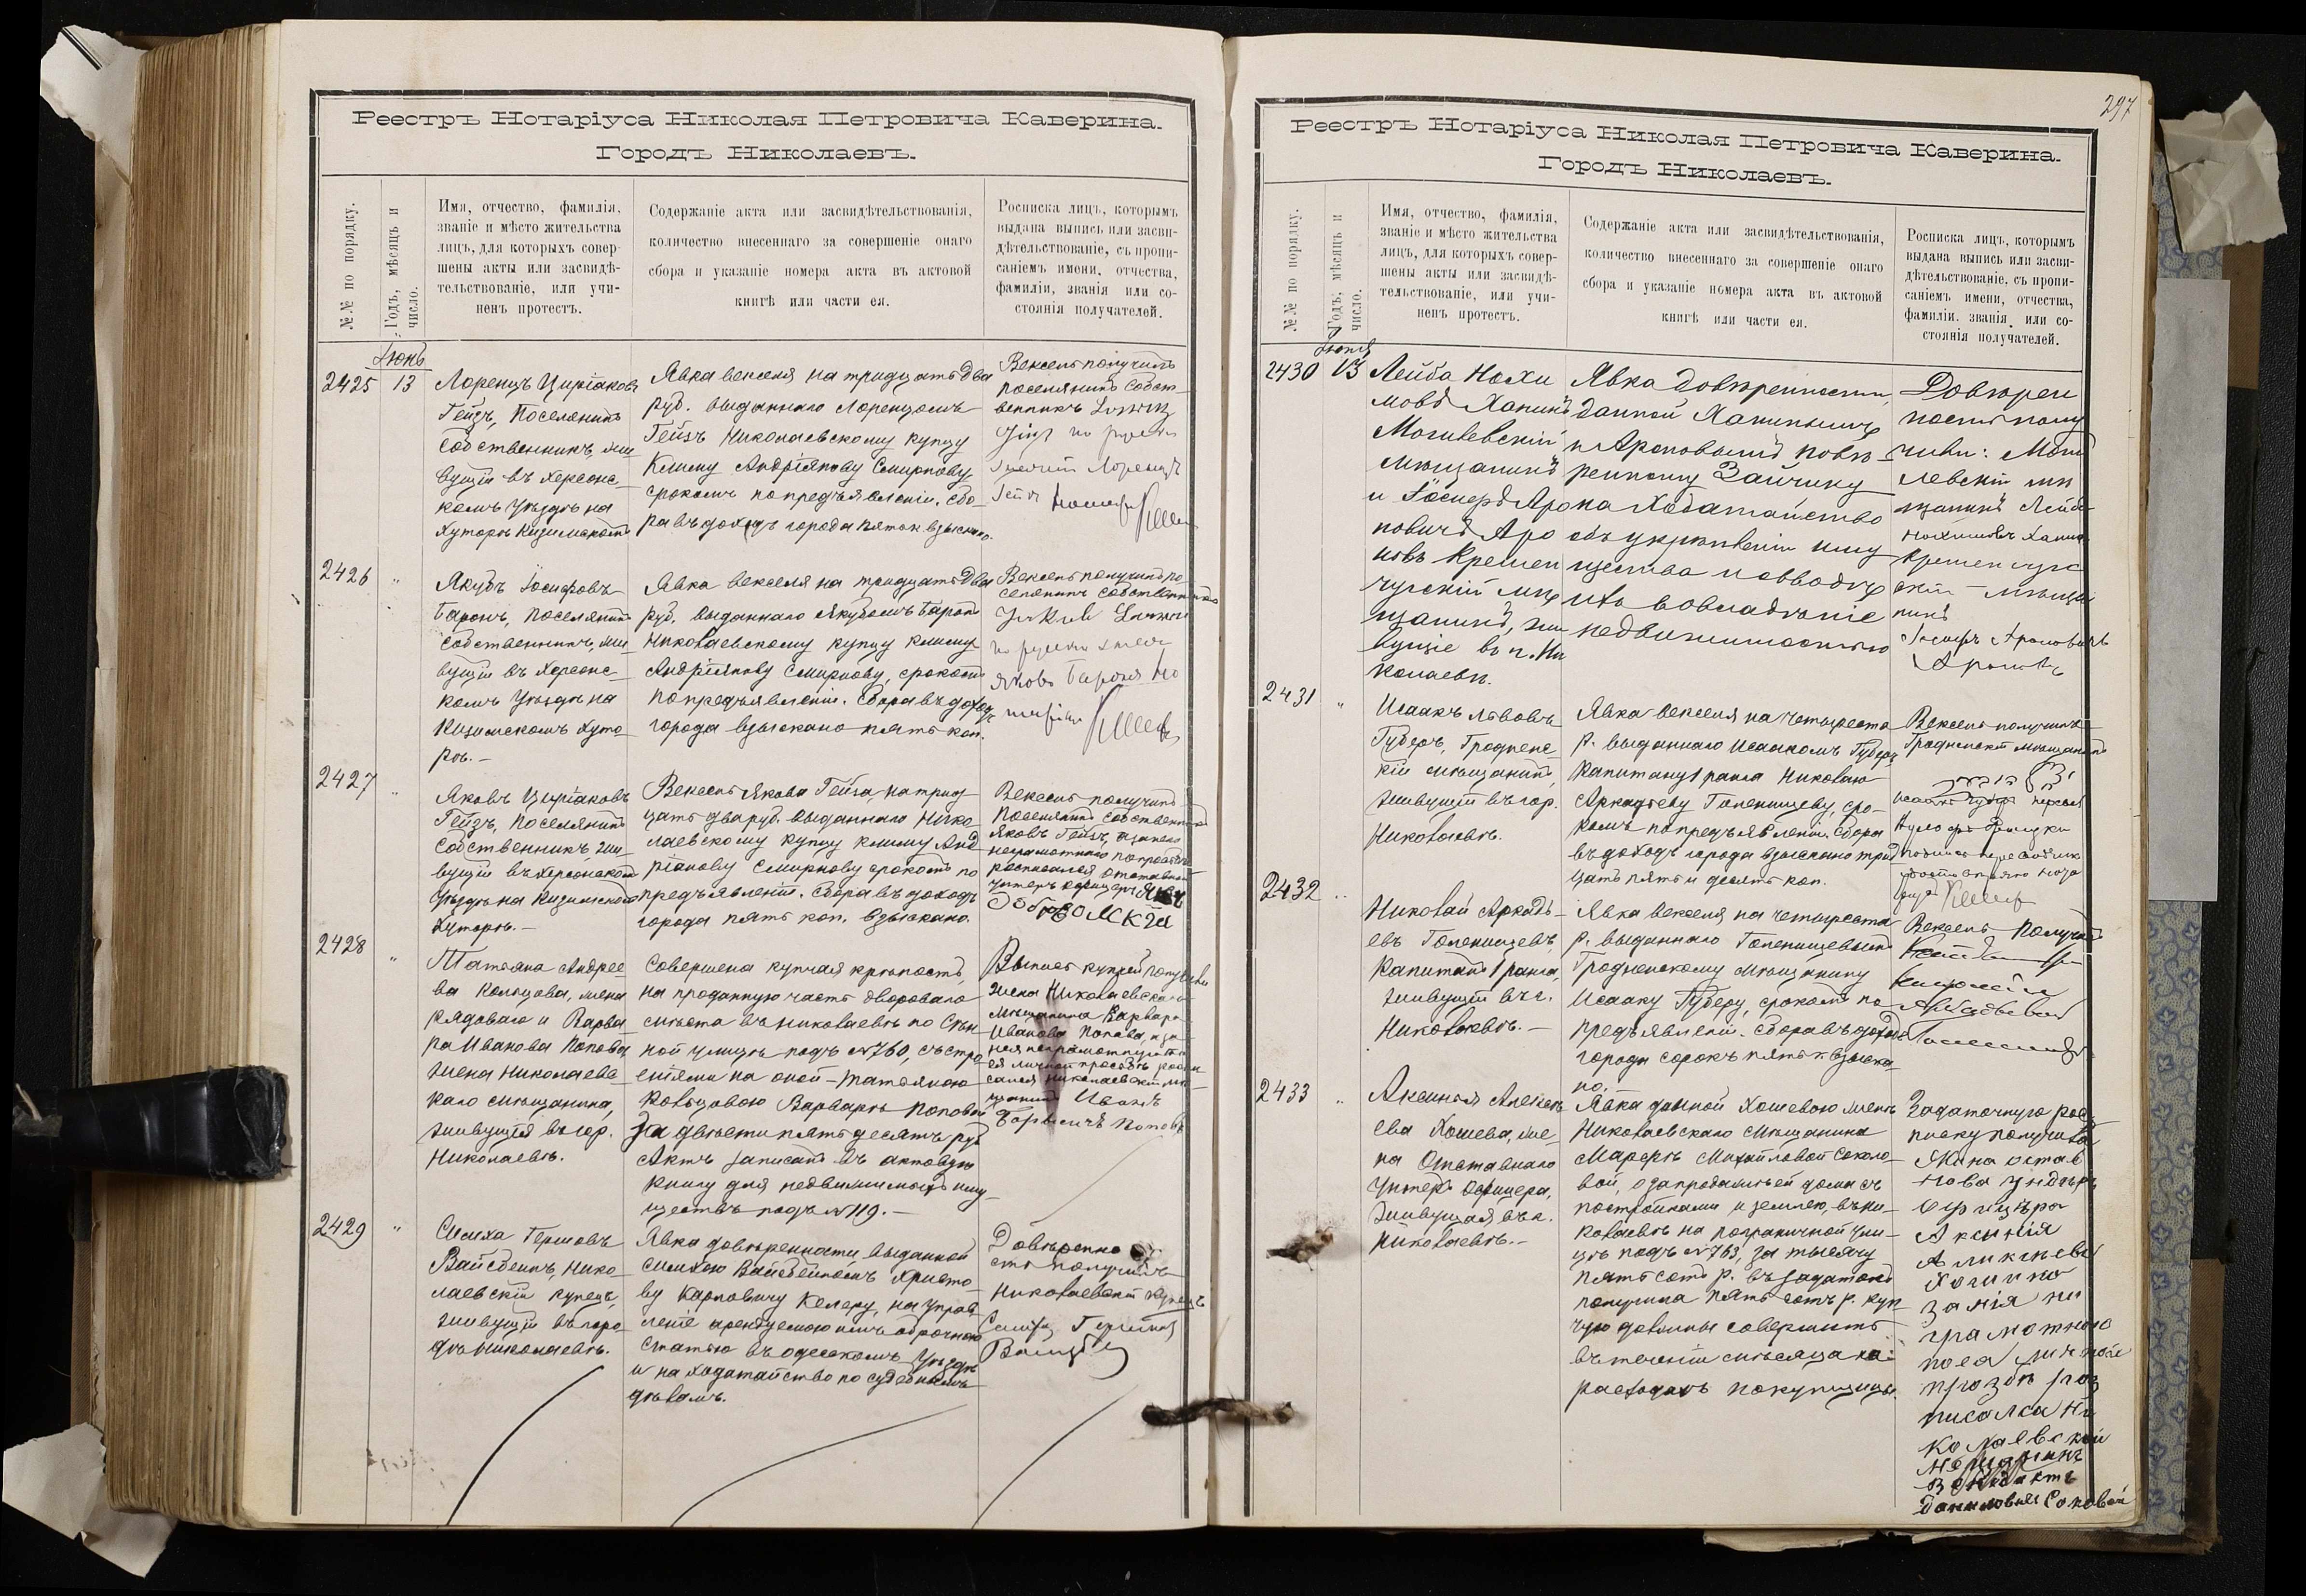 Реестръ Нотаріуса Николая Петровича Каверина.
Городъ Николаевъ.
№№ по порядку.
Годъ, мѣсяцъ и
число.
Имя, отчество, фамилія,
званіе и мѣсто жительства
лицъ, для которыхъ совер-
шены акты или засвидѣ-
тельствованіе, или учи-
ненъ протестъ.
Содержаніе акта или засвидѣтельствованія,
количество внесеннаго за совершеніе онаго
сбора и указаніе номера акта въ актовой
книгѣ или части ея.
Росписка лицъ, которымъ
выдана выпись или засви-
дѣтельствованіе, съ пропи-
саніемъ имени, отчества,
фамиліи, званія или со-
стоянія получателей.
Іюнь
2425
13
Лоренцъ Циріаковъ
Гейзъ, Поселянинъ
Собственникъ, жи-
вущій въ Херсонс-
комъ Уѣздѣ на
Хуторѣ
Явка векселя на тридцать два
руб. выданнаго Лоренцомъ
Гейзъ Николаевскому купцу
Климу Андріянову Смирнову
срокомъ по предъявленіи. Сбо-
ра въ доходъ города пять к. взыскано.
Вексель получилъ
поселянинъ собст-
венникъ
Лоренцъ
Гейзъ
2426
"
Якубъ Іосифовъ
Баронъ, поселянинъ
собственникъ, жи-
вущій въ Херсонс-
комъ Уѣздѣ на
хуто-
рѣ.-
Явка векселя на тридцать два
руб. выданнаго Якубомъ Баронъ
Николаевскому купцу Климу
Андріянову Смирнову, срокомъ
по предъявленіи. Сбора въ доходъ
города взыскано пять коп.
Вексель получилъ по-
селянинъ собственникъ
2427
"
Яковъ Циріаковъ
Гейзъ, поселянинъ
собственникъ, жи-
вущій въ Херсонскомъ
Уѣздѣ на
Хуторѣ.-
Вексель Якова Гейза, на трид-
цать два руб. выданнаго Нико-
лаевскому купцу Климу Анд-
ріанову Смирнову срокомъ по
предъявленіи. Сбора въ доходъ
города пять коп. взыскано.
Вексель получилъ
поселянинъ собственникъ
Яковъ Гейзъ, а за него
неграмотнаго по просьбѣ
росписался отставной
унтеръ офицеръ
2428
"
Татьяна Андрее-
ва Кольцова, жена
рядоваго и Варва-
ра Иванова Попова
жена Николаевс-
каго мѣщанина,
живущія въ гор.
Николаевѣ.
Совершена купчая крѣпость,
на проданную часть двороваго
мѣста въ Николаевѣ по Сѣн-
ной улицѣ подъ №760, съ стро-
еніями на оной - Татьяною
Кольцовою Варварѣ Поповой
за двѣсти пятьдесятъ руб.
Актъ записанъ въ актовую
книгу для недвижимыхъ иму-
ществъ подъ №119.-
Выпись купчей получила
жена Николаевскаго
мѣщанина Варвара
Иванова Попова, а за
нея неграмотную по
ея личной просьбѣ роспи-
сался Николаевскій мѣ-
щанинъ Иванъ
Попов
2429
"
Симха Гершовъ
Вайсбейнъ, Нико-
лаевскій купецъ,
живущій въ горо-
дѣ Николаевѣ.
Явка довѣренности выданной
Симхою Вайсбейномъ Христо-
ву Карповичу Келеру, на управ-
леніе арендуемою имъ оброчною
статьею въ Одесскомъ Уѣздѣ
и на ходатайство по судебнымъ
дѣламъ.
Довѣренно
сть получилъ
Николаевскій купецъ
297
Реестръ Нотаріуса Николая Петровича Каверина.
Городъ Николаевъ.
№№ по порядку.
Годъ, мѣсяцъ и
число.
Имя, отчество, фамилія,
званіе и мѣсто жительства
лицъ, для которыхъ совер-
шены акты или засвидѣ-
тельствованіе, или учи-
ненъ протестъ.
Содержаніе акта или засвидѣтельствованія,
количество внесеннаго за совершеніе онаго
сбора и указаніе номера акта въ актовой
книгѣ или части ея.
Росписка лицъ, которымъ
выдана выпись или засви-
дѣтельствованіе, съ пропи-
саніемъ имени, отчества,
фамиліи, званія или со-
стоянія получателей.
Іюня
2430
13
Лейба Нохи-
мовъ Хапинъ
Могилевскій
мѣщанинъ
и Іосифъ Аро-
новичъ Аро-
новъ Кремен-
чугскій мѣ-
щанинъ, жи-
вущіе въ г. Ни-
колаевѣ.
Явка довѣренности,
данной Хапинымъ
и Ароновымъ повѣ-
ренному Зайчику
на ходатайство
объ укрѣпленіи иму-
щества и о вводѣ
ихъ во владѣніе
недвижимостью
Довѣрен
ность полу
чили: Моги
левскій мѣ
щанинъ Лейба
Нохимовъ Хапин
Кременчугс
кій мѣща
нинъ
Іосифъ Ароновичъ
Ароновъ
2431
"
Исаакъ Львовъ
Губеръ, Гродненс-
кій мѣщанинъ,
живущій въ гор.
Николаевѣ.
Явка векселя на четыреста
р. выданнаго Исаакомъ Губеръ
Капитану 1 ранга Николаю
Аркадьеву Голенищеву, сро-
комъ по предъявленіи. Сбора
въ доходъ города взыскано трид-
цать пять и десять коп.
Вексель получилъ
Гродненскій мѣщанинъ
2432
"
Николай Аркадь-
евъ Голенищевъ,
Капитанъ 1 ранга,
живущій въ г.
Николаевѣ.-
Явка векселя на четыреста
р. выданнаго Голенищевымъ
Гродненскому мѣщанину
Исааку Губеру, срокомъ по
предъявленіи. Сбора въ доходъ
города сорокъ пять к. взыска-
но.
Вексель получилъ
2433
"
Аксинья Алексѣ-
ева Хошева, же-
на Отставнаго
Унтеръ Офицера,
живущая въ г.
Николаевѣ.-
Явка данной Хошевою женѣ
Николаевскаго мѣщанина
Марфѣ Михайловой Соколо-
вой, о запродажѣ ей дома съ
постройками и землею, въ Ни-
колаевѣ на пограничной ули-
цѣ подъ №763, за тысячу
пятьсотъ р. въ задатокъ
получила пятьсотъ р. куп-
чую должны совершить
въ теченіи мѣсяца на
расходахъ покупщицы.
Задаточную рос
писку получила
жена отстав
нова ундеръ
офицера
Аксинія
за нія ни
грамотною
писалса Ни
колаевской
мещанинъ